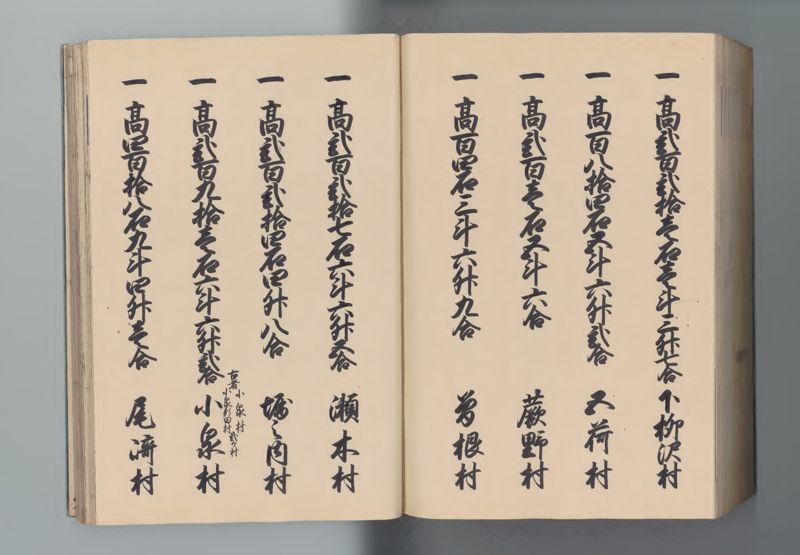 一 高弐百弐拾壱石壱斗三升七合 下柳沢村
一 高百八拾四石五斗六升弐合 五荷村
一 高弐百壱石五斗六合 蕨野村
一 高百四石三斗六升九合 曽根村
一 高弐百弐拾七石六斗六升五合 瀬木村
一 高弐百弐拾四石四升八合 堀之内村
一 高弐百九拾壱石六斗六升弐合 小泉村
古者 小泉村
小泉新田村 弐ケ村
一 高四百拾八石九斗四升壱合 尾崎村